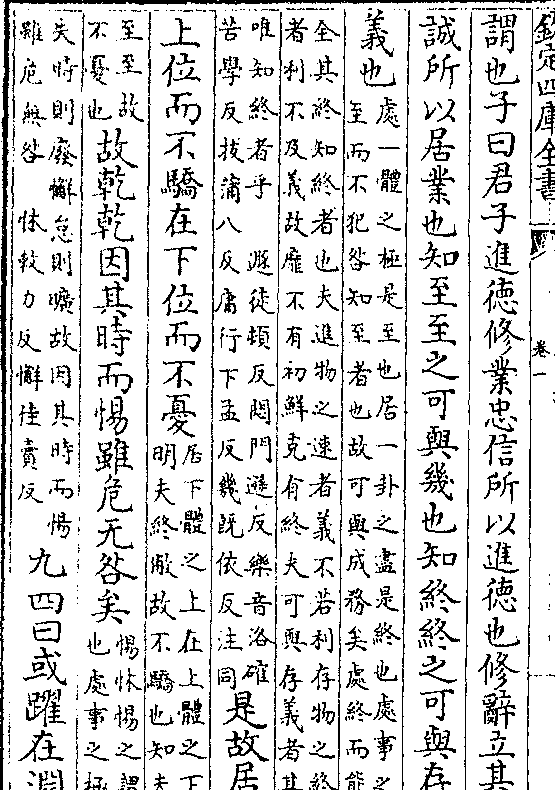 欽定四庫全書
卷一
謂也子曰君子進德修業忠信所以進德也修辭立其
誠所以居業也知至至之可與幾也知終終之可與存
義也
處一體之極是至也居一卦之盡是終也處事之
至而不犯咎知至者也故可與成務矣處終而能
全其終知終者也夫進物之速者義不若利存物之終
者利不及義故靡不有初鮮克有終夫可與存義者其
唯知終者乎 遯徒頓反悶門遯反樂音洛確
苦學反拔蒲八反庸行下孟反幾既依反注同
是故居
上位而不驕在下位而不憂
居下體之上在上體之下
明夫終敝故不驕也知夫
至至故
不憂也
故乾乾因其時而惕雖危无咎矣
惕怵惕之謂
也處事之極
失時則廢懈怠則曠故因其時而惕
雖危無咎 怵敕力反懈佳賣反
九四曰或躍在淵